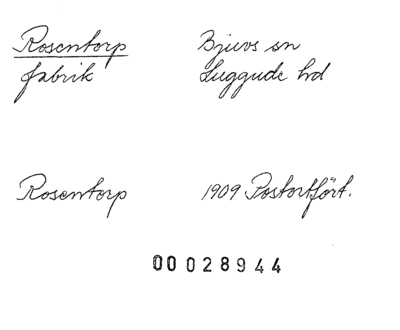 Rosentorp Bjuvs sn
fabrik Luggude hd
Rosentorp 1909 Postortsfört.
00028944